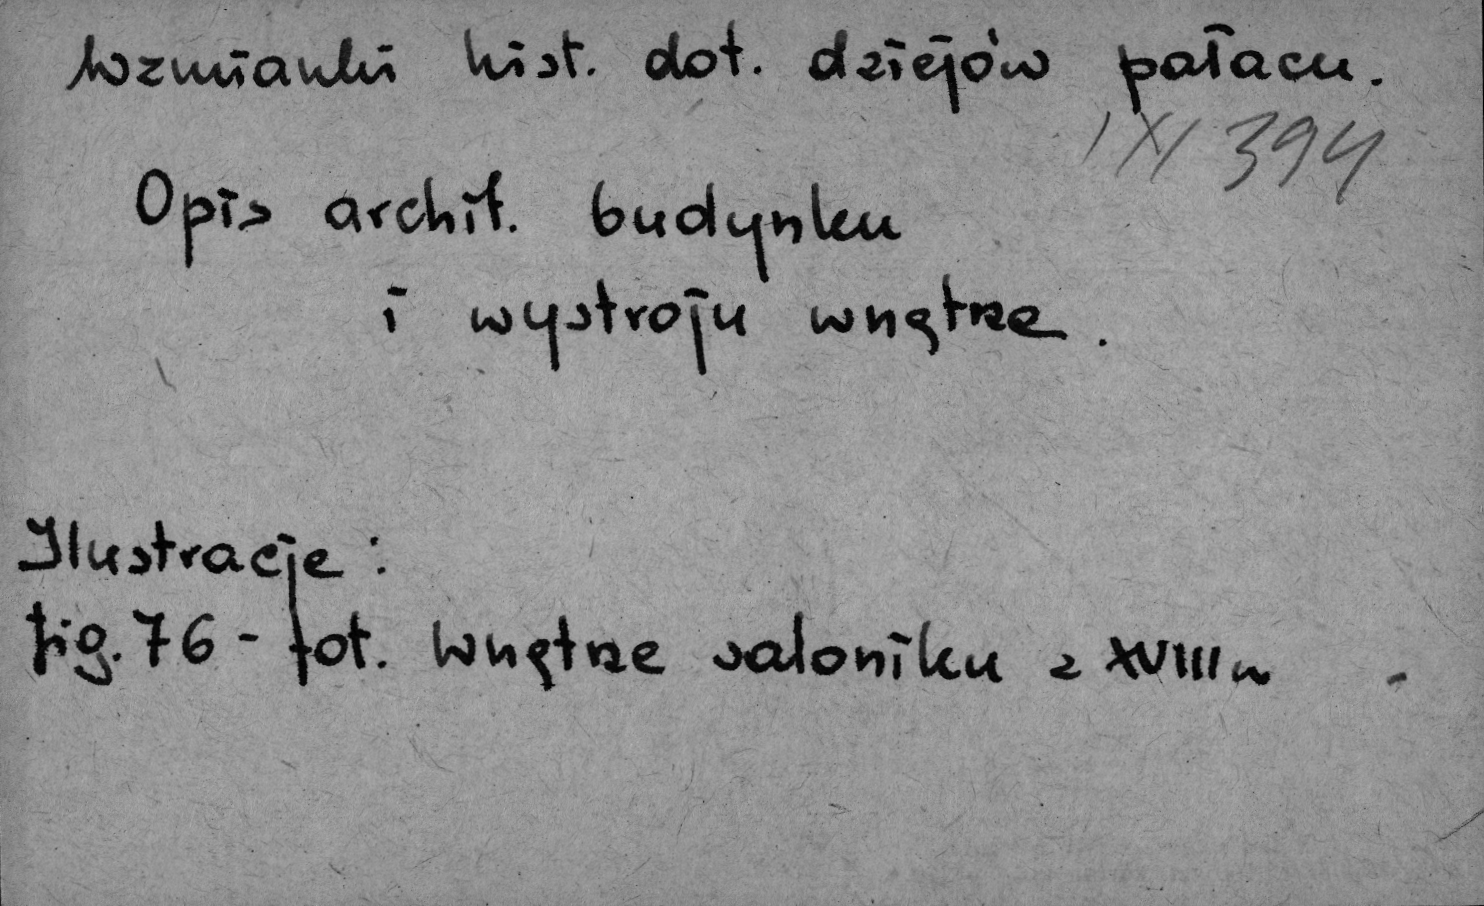 Wzmianki hist. dot. dziejów pałacu.
394
Opis archit. budynku
i wystroju wnętrze.
Ilustracje:
fig. 76 - fot. Wnętrze saloniku z XVIII w